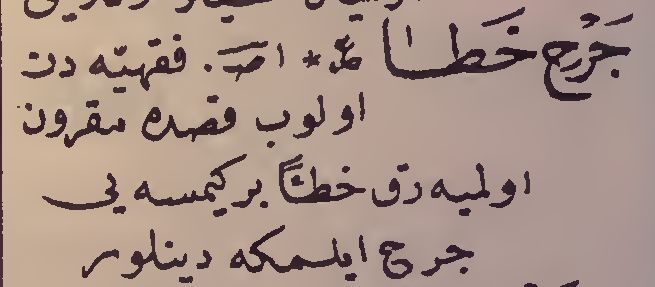 جَرْح خَطَا عـ * اصـ. فقهيّه دن
اولوب قصده مقرون
اولميه رق خطأً بر كيمسه يى
جرح ايلمكه دينلور